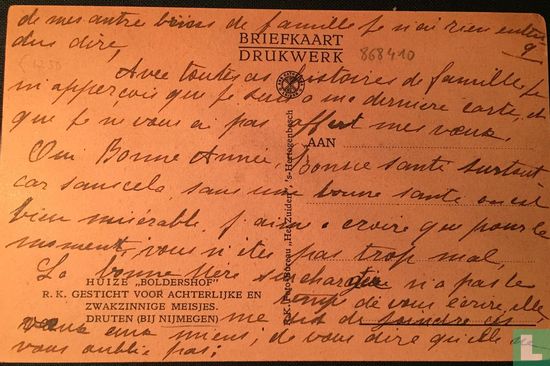 de mes autre de famille je n'ai rien enten
dus dire,
BRIEFKAART
DRUKWERK
868410
Avec toutes ces histoires de famille je
m'aperçois que je suis a ma derniere carte, et
que je ne vous ai pas offert mes vœux
AAN
Oui Bonne Année, bonne santé surtout
car sans cela, sans une bonne santé on est
bien misérable, j'aime a croire que pour le
moment, vous n'êtes pas trop mal,
La bonne Mère n'a pas le
temps de vous écrire, elle
HUIZE „BOLDERSHOF"
R. K. GESTICHT VOOR ACHTERLIJKE EN
ZWAKZINNIGE MEISJES.
DRUTEN (BIJ NIJMEGEN)
me dit de joindre ces
vœux aux miens, de vous dire qu'elle ne
vous oublie pas;
R. K. Foto-Bureau „Het Zuiden", 's-Hertogenbosch
catawiki